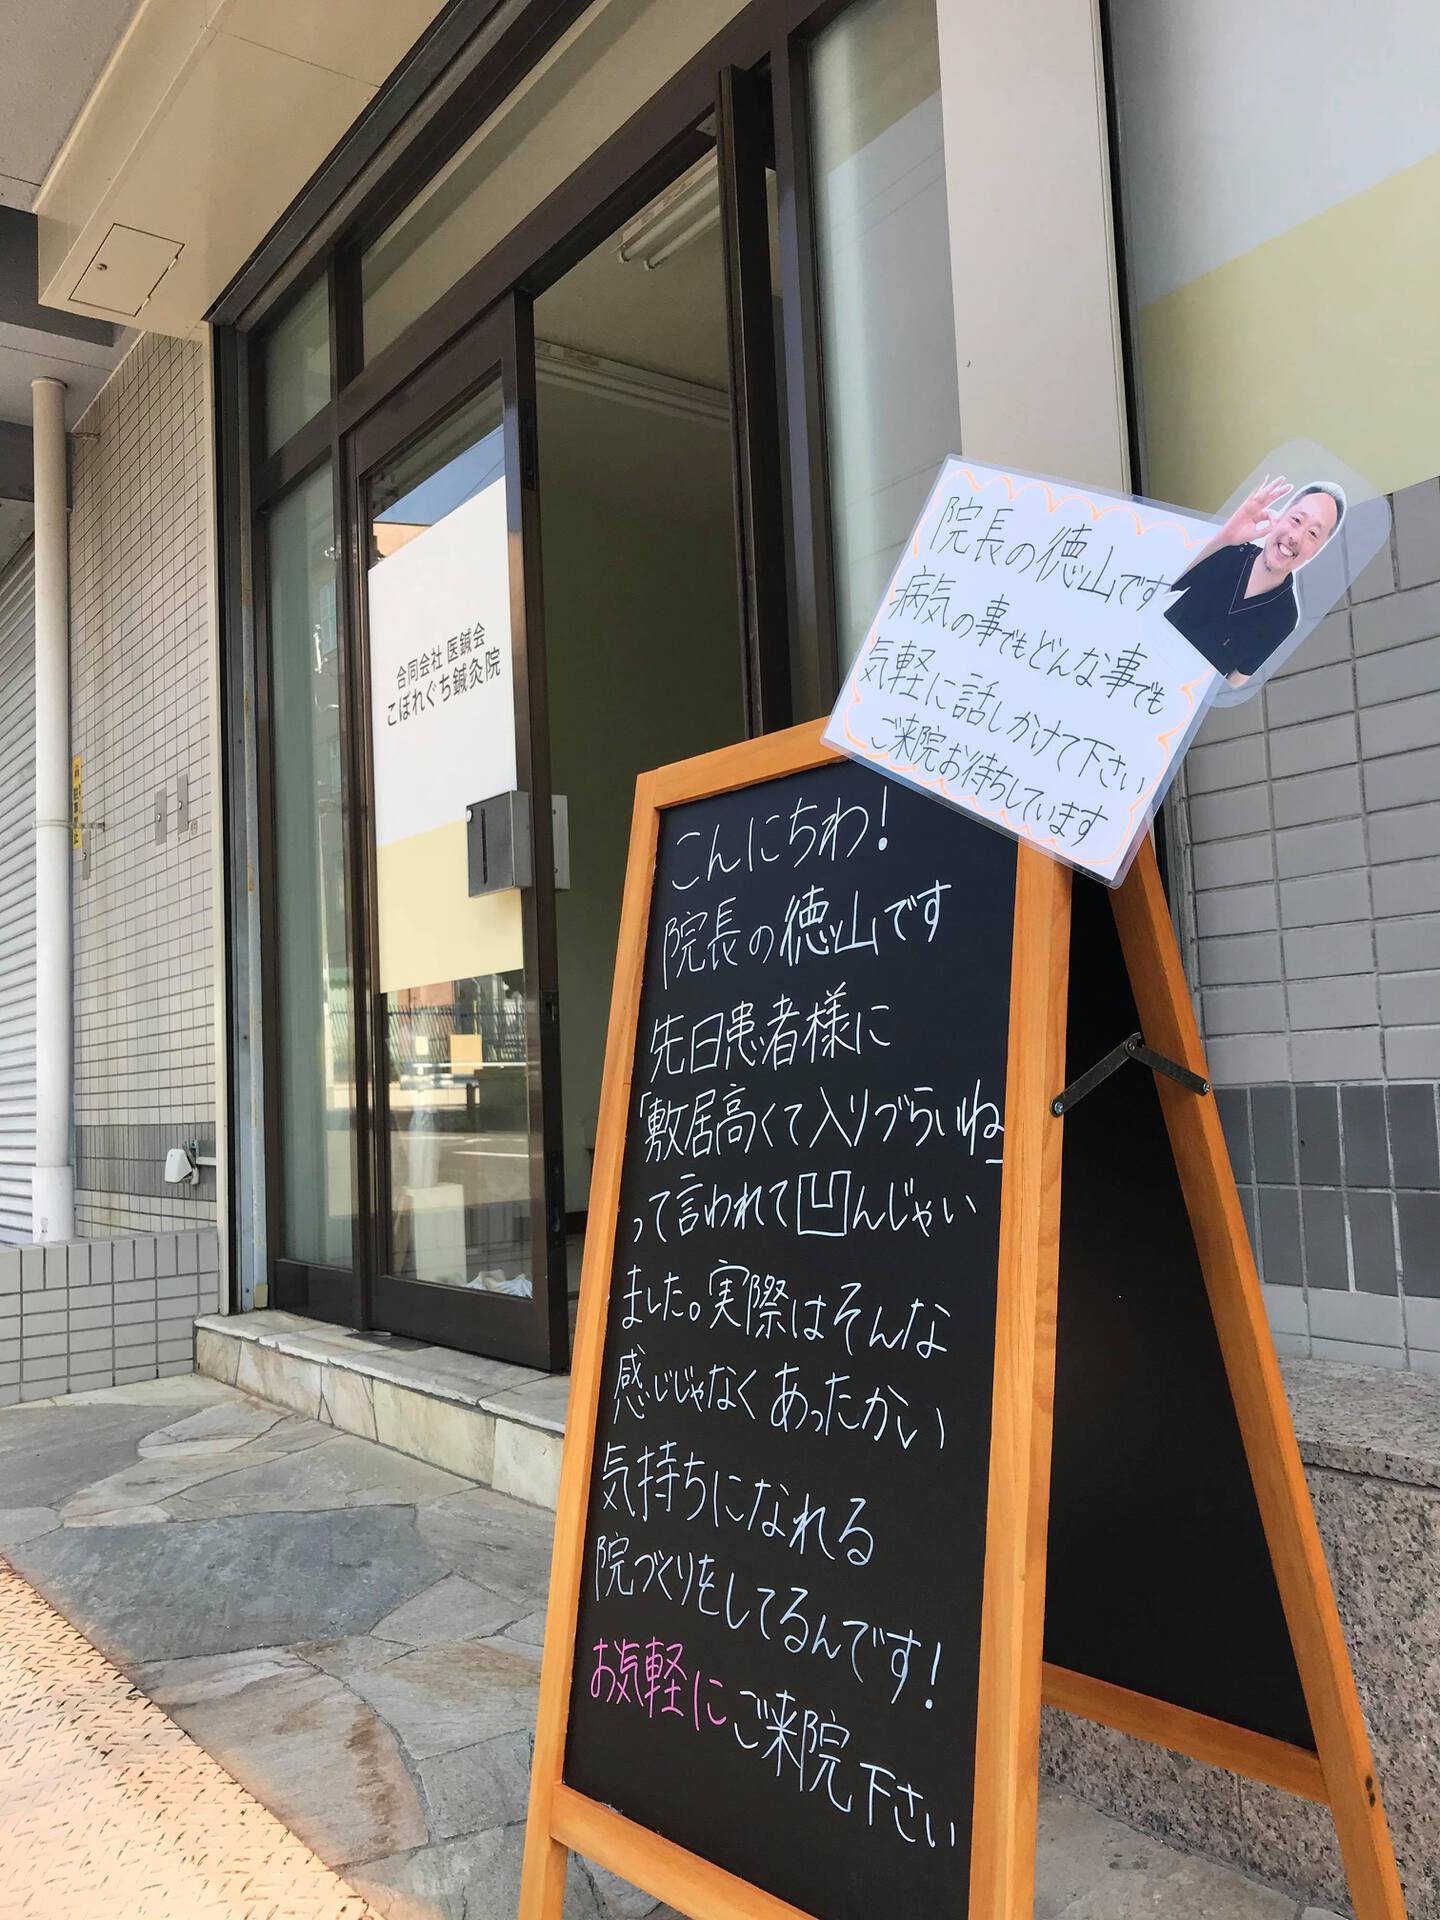 合同会社 医鍼会
こぼれぐち鍼灸院
院長の徳山です
病気の事でもどんな事でも
気軽に話しかけて下さい
ご来院お待ちしています
こんにちわ!
院長の徳山です
先日患者様に
「敷居高くて入りづらいね」
って言われて凹んじゃい
ました。実際はそんな
感じじゃなくあったかい
気持ちになれる
院づくりをしてるんです!
お気軽にご来院下さい